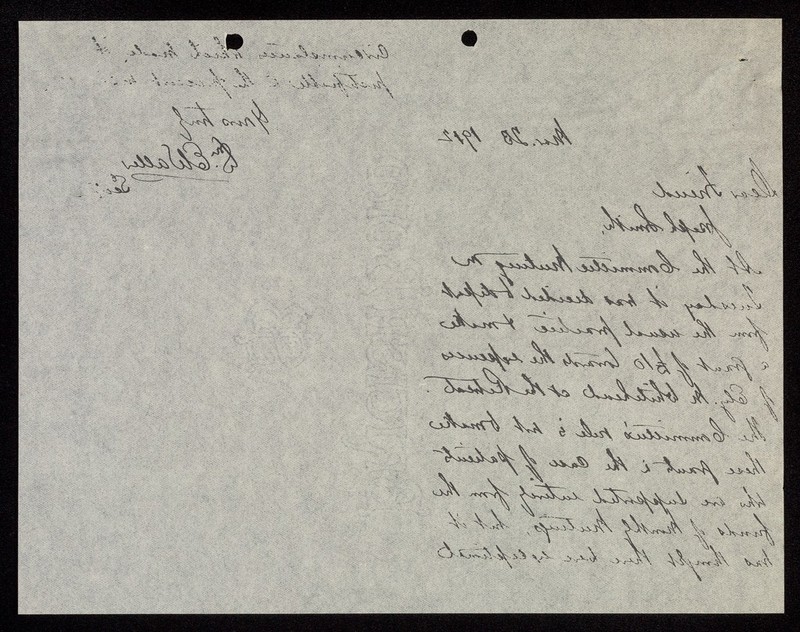 Nov. 28 1912
Dear Friend
Joseph Smith,
At the Committee Meeting on
Tuesday it was decided to depart
from the usual practice & make
a grant of £10 towards the expenses
of M. Whitehead at the Retreat.
The Committee's rule is not to make
these grants in the case of patients
who are supported entirely from the
funds of Monthly Meetings, but it
was thought there were exceptional
circumstances which made it
justifiable in the present case.
Yours truly
E. Waller
Sec: